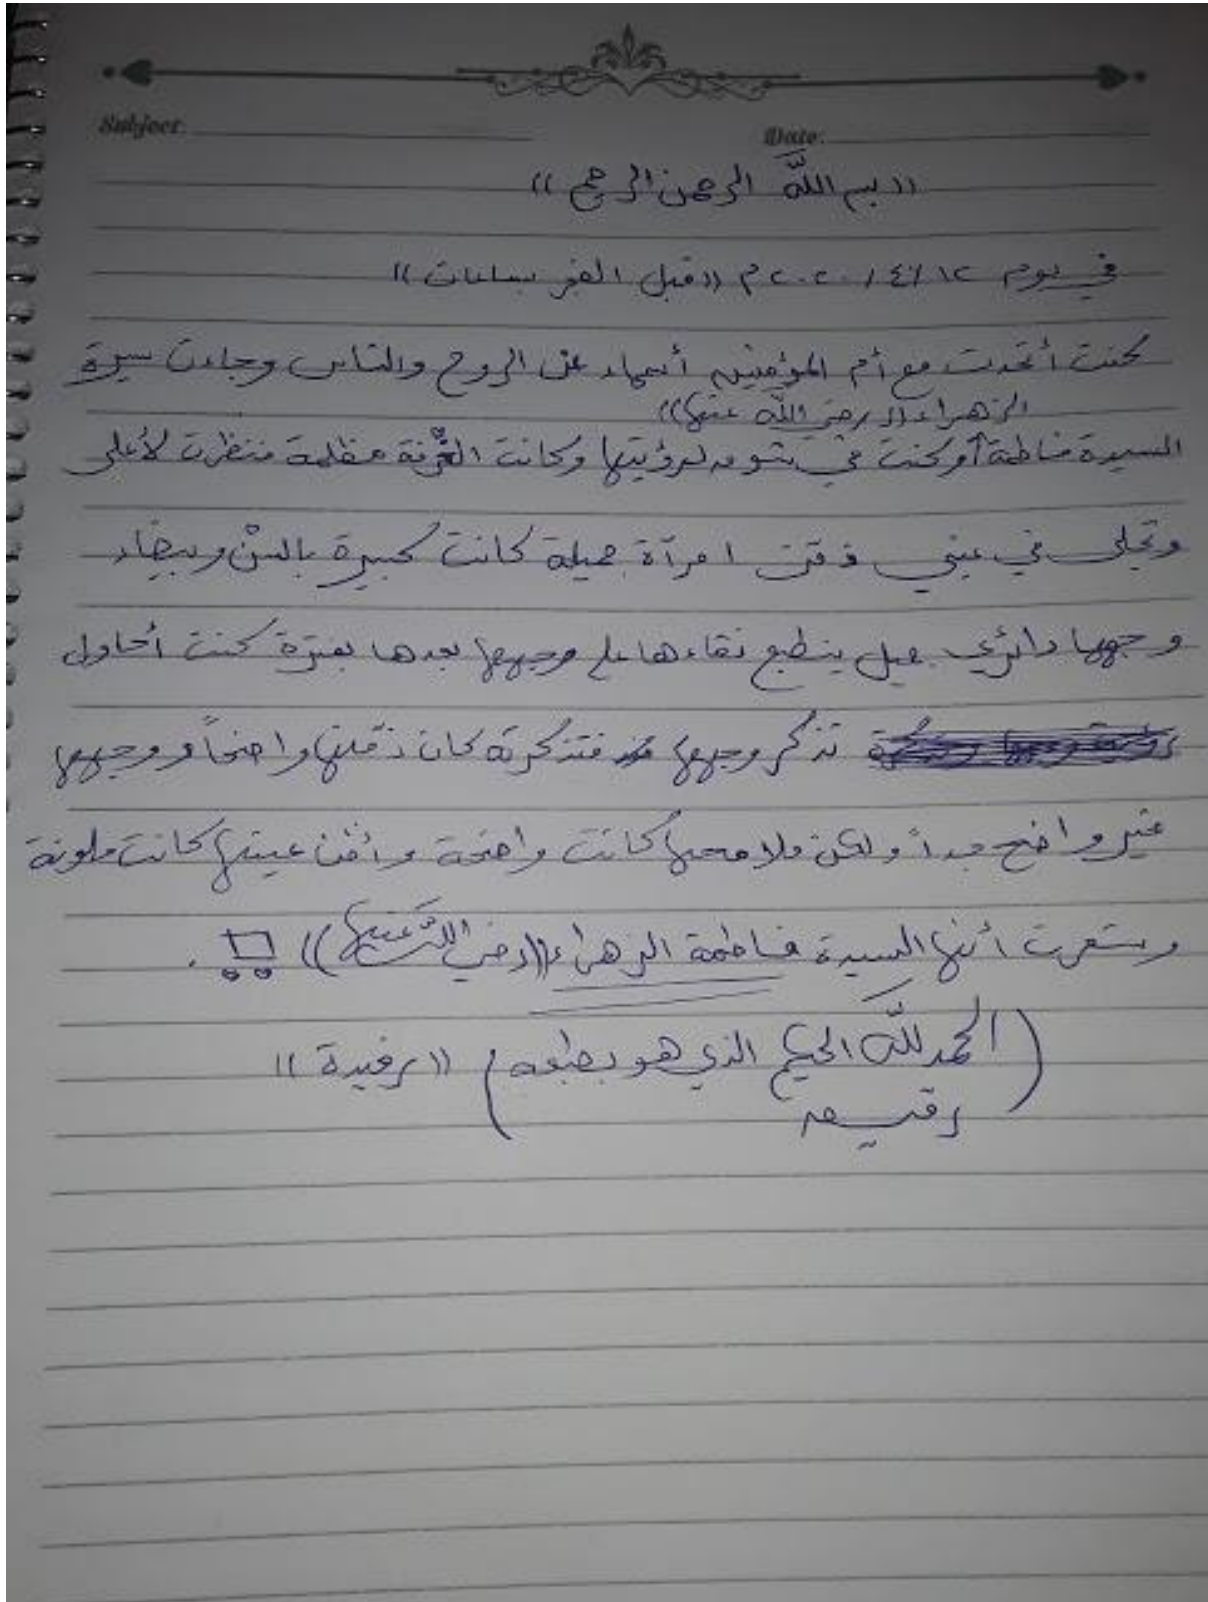 Subject:
Date:
((بسم الله الرحمن الرحيم))
في يوم ١٢/٤/٢٠٢٠م ((قبل الفجر بساعات))
كنت أتحدث مع أم المؤمنين أسماء عن الروح والناس وجاءت سيرة
الزهراء ((رضي الله عنها))
السيدة فاطمة وكنت في شوق لرؤيتها وكانت الغرفة مظلمة فنظرت لأعلى
وتجلى في عيني امرأة جميلة كانت كبيرة بالسن وبيضاء
وجهها دائري جميل ينطبع نقاءها على وجهها بعدها بفترة كنت أحاول
تذكر وجهها فتذكرته كان ذقنها واضحاً ووجهها
غير واضح جداً ولكن ملامحها كانت واضحة وأظن عينيها كانت ملونة
وشعرت أنها السيدة فاطمة الزهراء ((رضي الله عنها)) .
(الحمدلله الحكيم الذي هو بطبعه) ((رفيدة))